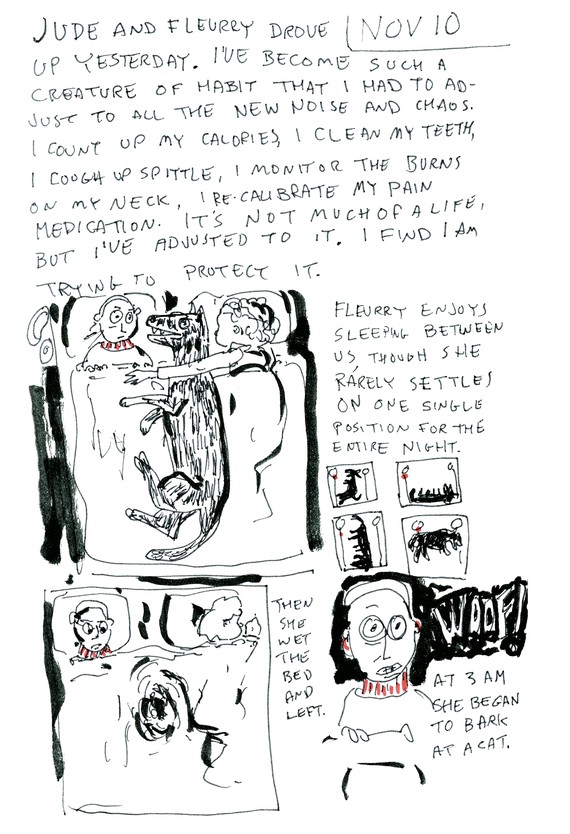 JUDE AND FLEURRY DROVE
NOV 10
UP YESTERDAY. I'VE BECOME SUCH A
CREATURE OF HABIT THAT I HAD TO AD-
JUST TO ALL THE NEW NOISE AND CHAOS.
I COUNT UP MY CALORIES, I CLEAN MY TEETH,
I COUGH UP SPITTLE, I MONITOR THE BURNS
ON MY NECK, I RE-CALIBRATE MY PAIN
MEDICATION. IT'S NOT MUCH OF A LIFE,
BUT I'VE ADJUSTED TO IT. I FIND I AM
TRYING TO PROTECT IT.
FLEURRY ENJOYS
SLEEPING BETWEEN
US THOUGH SHE
RARELY SETTLES
ON ONE SINGLE
POSITION FOR THE
ENTIRE NIGHT.
THEN
SHE
WET
THE
BED
AND
LEFT.
WOOF!
AT 3 AM
SHE BEGAN
TO BARK
AT A CAT.